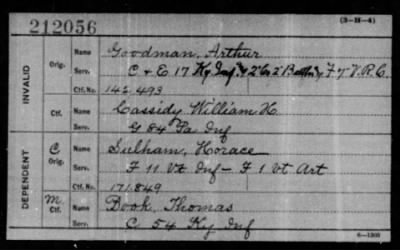 212056
(3-H-4)
INVALID
Orig. Name Goodman, Arthur
Serv. C & E 17 Ky Inf, 2 Batt'y F 7 V.R.C.
Ctf. No. 142.493
Ctf. Name Cassidy William H.
Serv. G 84 Pa Inf
DEPENDENT
C Orig. Name Sulham, Horace
Serv. F 11 Vt Inf - F 1 Vt Art
Ctf. No. 171.849
M. Ctf. Name Book, Thomas
Serv. C 54 Ky Inf
6-1303